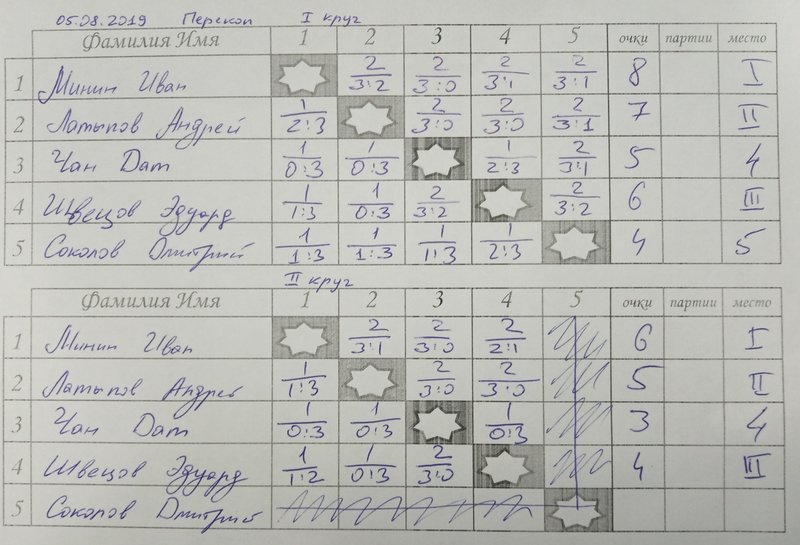 05.08.2019 Перекоп I круг
Фамилия Имя 1 2 3 4 5 очки партии место
1 Минин Иван 2 3:2 2 3:0 2 3:1 2 3:1 8 I
2 Латыпов Андрей 1 2:3 2 3:0 2 3:0 2 3:1 7 II
3 Чан Dam 1 0:3 1 0:3 1 2:3 2 3:1 5 4
4 Швецов Эдуард 1 1:3 1 0:3 2 3:2 2 3:2 6 III
5 Соколов Дмитрий 1 1:3 1 1:3 1 1:3 1 2:3 4 5
II круг
Фамилия Имя 1 2 3 4 5 очки партии место
1 Минин Иван 2 3:1 2 3:0 2 2:1 6 I
2 Латыпов Андрей 1 1:3 2 3:0 2 3:0 5 II
3 Чан Dam 1 0:3 1 0:3 1 0:3 3 4
4 Швецов Эдуард 1 1:2 1 0:3 2 3:0 4 III
5 Соколов Дмитрий